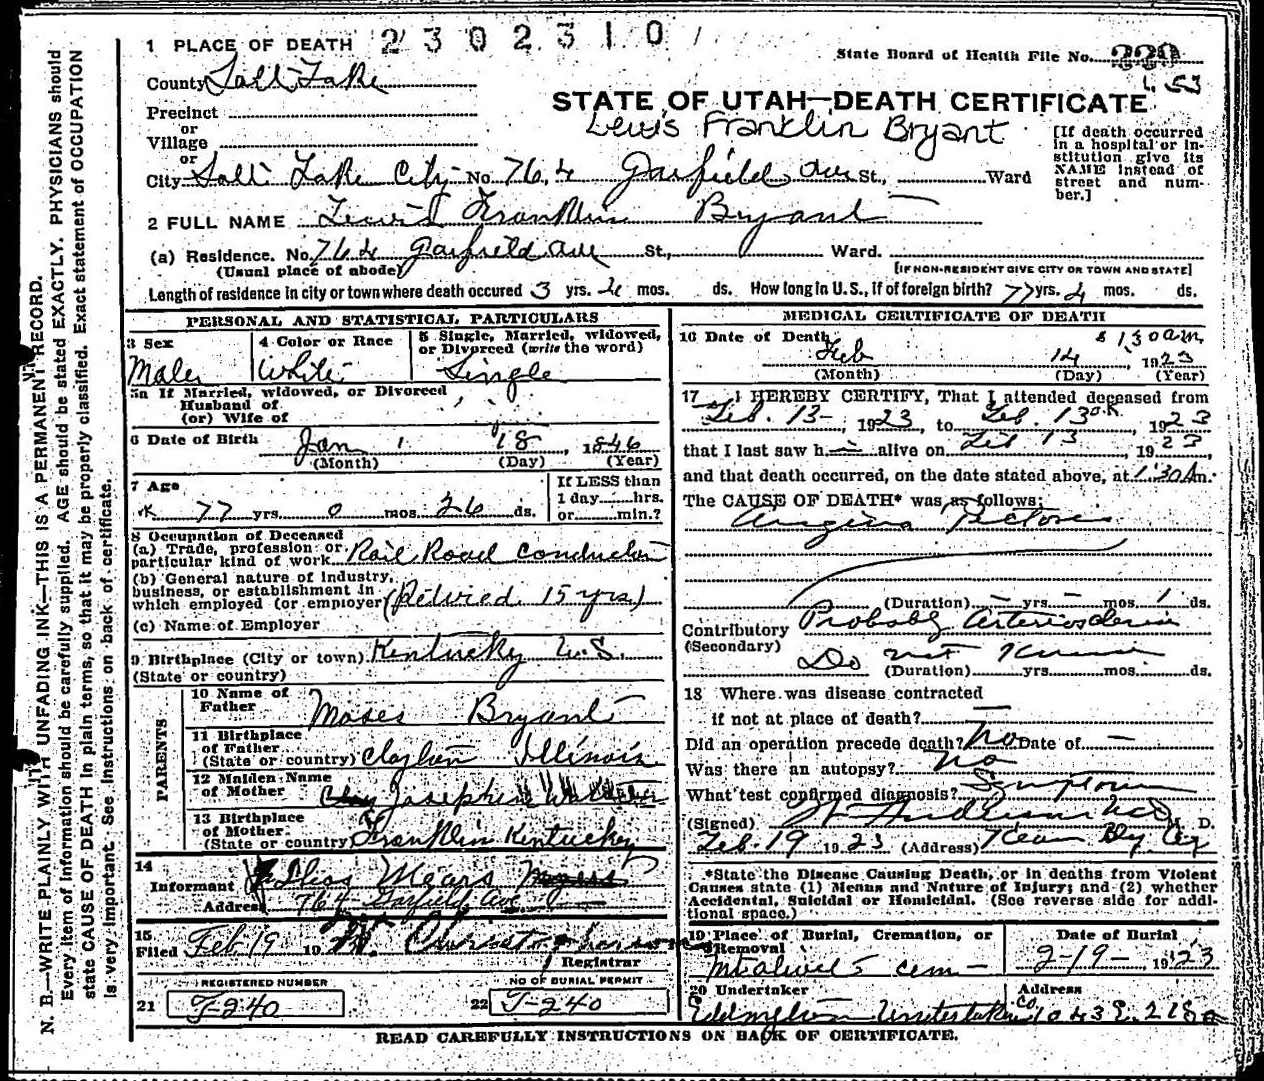 2302310
1 PLACE OF DEATH
State Board of Health File No. 229
53
County Salt Lake
STATE OF UTAH—DEATH CERTIFICATE
Precinct
Lewis Franklin Bryant
or
Village
or
City Salt Lake City No. 764 Garfield Ave St., Ward
[If death occurred in a hospital or in-
stitution give its
NAME instead of
street and num-
ber.]
2 FULL NAME Lewis Franklin Bryant
(a) Residence. No. 764 Garfield Ave St., Ward.
(Usual place of abode)
[IF NON-RESIDENT GIVE CITY OR TOWN AND STATE]
Length of residence in city or town where death occured 3 yrs. 4 mos. ds. How long in U.S., if of foreign birth? 77 yrs. 4 mos. ds.
N. B.—WRITE PLAINLY WITH UNFADING INK—THIS IS A PERMANENT RECORD.
Every item of information should be carefully supplied. AGE should be stated EXACTLY. PHYSICIANS should
state CAUSE OF DEATH in plain terms, so that it may be properly classified. Exact statement of OCCUPATION
is very important. See instructions on back of certificate.
PERSONAL AND STATISTICAL PARTICULARS
3 Sex
Male
4 Color or Race
White
5 Single, Married, widowed,
or Divorced (write the word)
Single
5a If Married, widowed, or Divorced
Husband of
(or) Wife of
6 Date of Birth Jan 18, 1846
(Month) (Day) (Year)
7 Age
77 yrs. 0 mos. 26 ds.
If LESS than
1 day hrs.
or min.?
8 Occupation of Deceased
(a) Trade, profession or
particular kind of work Rail Road Conductor
(b) General nature of Industry,
business, or establishment in
which employed (or employer) (Retired 15 yrs)
(c) Name of Employer
9 Birthplace (City or town) Kentucky U.S.
(State or country)
PARENTS
10 Name of
Father Moses Bryant
11 Birthplace
of Father
(State or country) Clayton Illinois
12 Maiden Name
of Mother Josephine
13 Birthplace
of Mother
(State or country) Franklin Kentucky
14
Informant Thos Mears
Address 764 Garfield Ave
15
Filed Feb 19 19
Registrar
REGISTERED NUMBER
21 T-240
NO OF BURIAL PERMIT
22 T-240
MEDICAL CERTIFICATE OF DEATH
16 Date of Death 1:30 am
Feb 14, 1923
(Month) (Day) (Year)
17 I HEREBY CERTIFY, That I attended deceased from
Feb. 13- 1923, to Feb. 13, 1923
that I last saw h alive on Feb 13, 1923,
and that death occurred, on the date stated above, at 1:30 Am.
The CAUSE OF DEATH* was as follows:
Angina Pectoris
(Duration) — yrs. — mos. 1 ds.
Contributory Probably arteriosclerosis
(Secondary)
Do not know
(Duration) yrs. mos. ds.
18 Where was disease contracted
if not at place of death? —
Did an operation precede death? No Date of —
Was there an autopsy? No
What test confirmed diagnosis? Symptoms
(Signed) M. D.
Feb. 19 1923 (Address)
*State the Disease Causing Death, or in deaths from Violent
Causes state (1) Menus and Nature of Injury; and (2) whether
Accidental, Suicidal or Homicidal. (See reverse side for addi-
tional space.)
19 Place of Burial, Cremation, or
Removal
Mt Olivet cem —
Date of Burial
2-19- 1923
20 Undertaker
Undertaking Co
Address
READ CAREFULLY INSTRUCTIONS ON BACK OF CERTIFICATE.